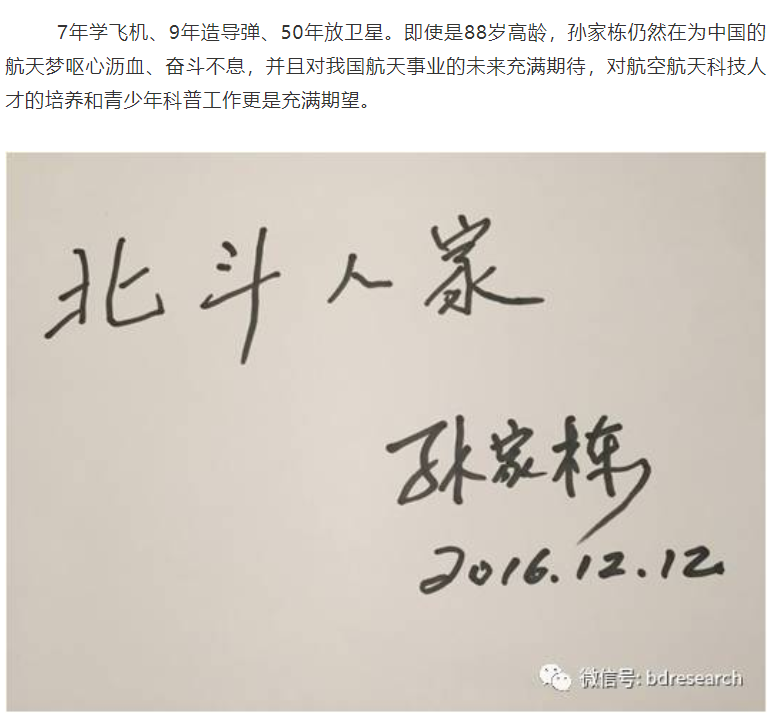 7年学飞机、9年造导弹、50年放卫星。即使是88岁高龄，孙家栋仍然在为中国的
航天梦呕心沥血、奋斗不息，并且对我国航天事业的未来充满期待，对航空航天科技人
才的培养和青少年科普工作更是充满期望。
北斗人家
孙家栋
2016.12.12
微信号: bdresearch